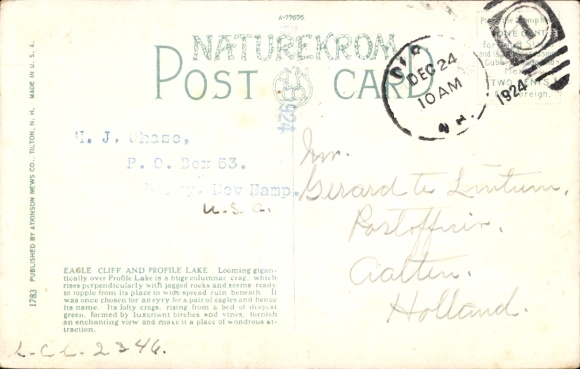 A-77676
NATUREKROM
POST CARD
DEC 24
10 AM
1924
N.H.
1
ONE CENT
TWO CENTS
1924
H. J. Chase,
P. O. Box 53.
New Hamp.
U.S.A.
Mr.
Gerard te Lintum.
Aalten.
Holland.
EAGLE CLIFF AND PROFILE LAKE Looming gigan-
tically over Profile Lake is a huge columnar crag, which
rises perpendicularly with jagged rocks and seems ready
to topple from its place to wide spread ruin beneath. It
was once chosen for an eyry for a pair of eagles and hence
its name. Its lofty crags, rising from a bed of deepest
green, formed by luxuriant birches and vines, furnish
an enchanting view and make it a place of wondrous at-
traction.
L.C.C. 2346.
1783 PUBLISHED BY ATKINSON NEWS CO., TILTON, N. H. MADE IN U. S. A.